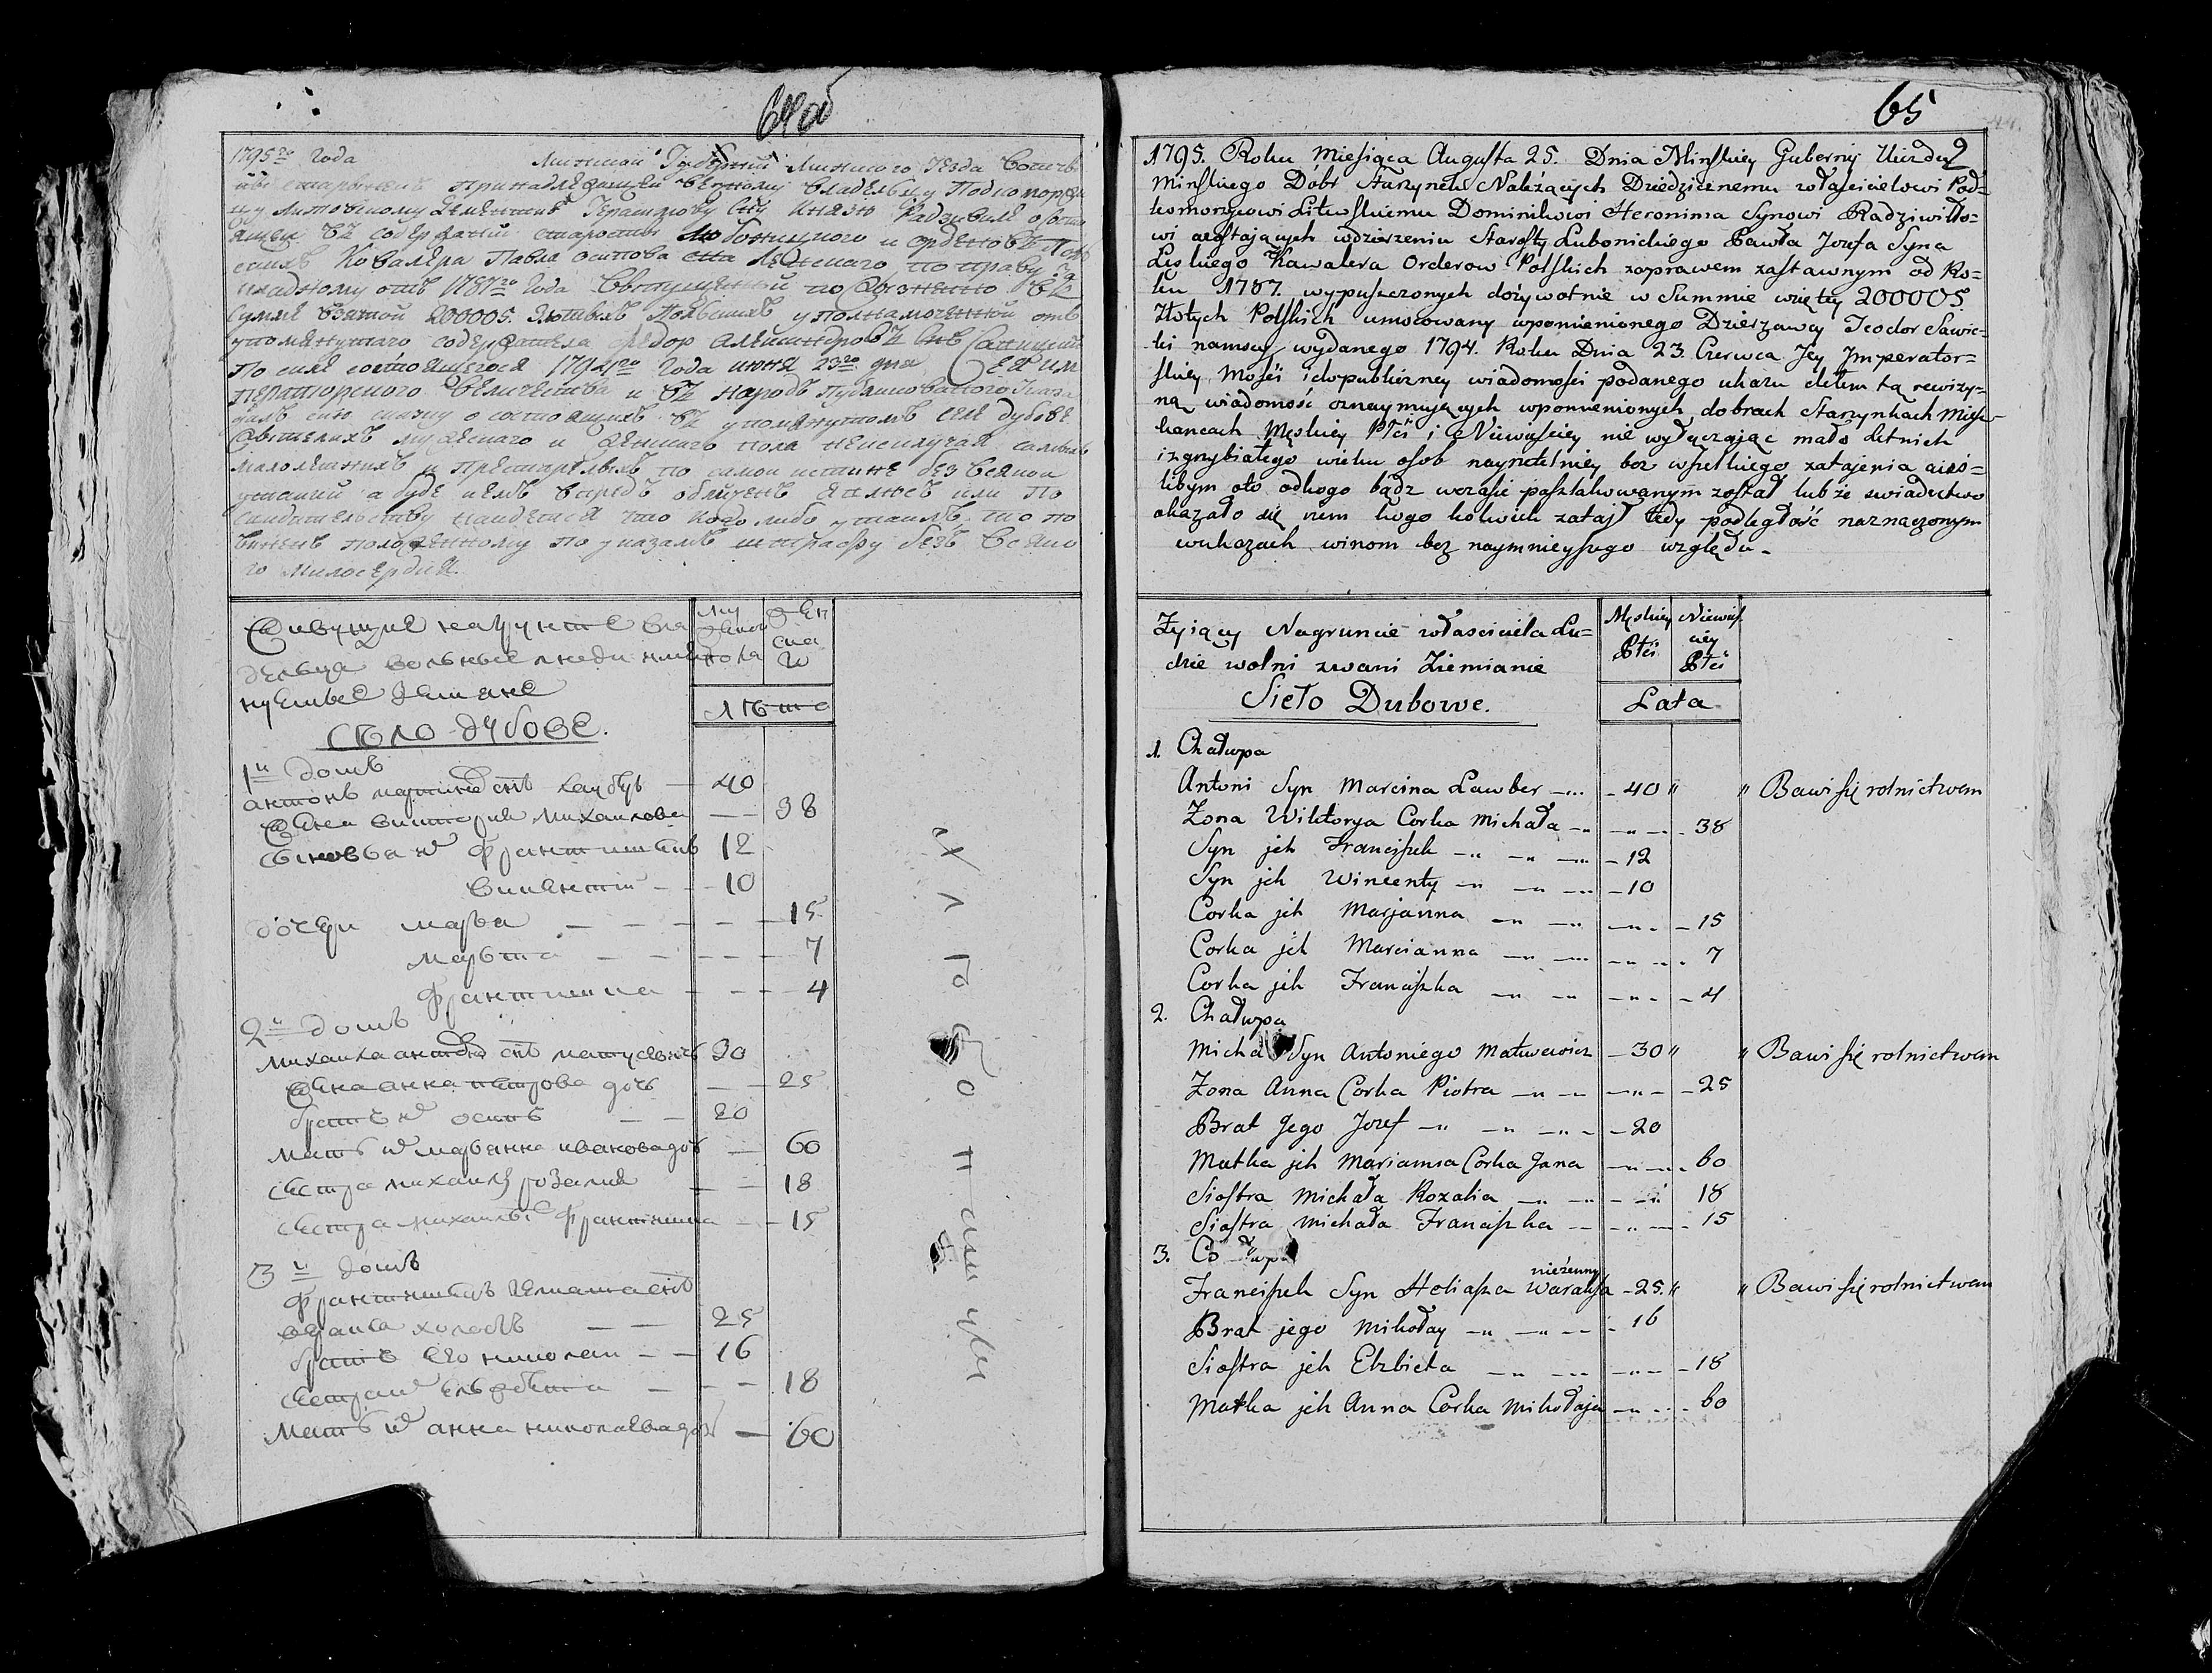 64об
1795го Года Минской Губернии Минского уезда
принадлежащей вечному владельцу Подкомор
Литовскому Доминику Князю Радзивилу
въ содержании старосты Любоницкого и орденовъ
Кавалера Павла осипова сна по праву за
отъ 1787го Года
Суммѣ взятой 200005. Злотыхъ Польскихъ уполнамоченной отъ
упомянутаго содержателя федор александровъ снъ Савицкий
По силе состоявшегося 1794го Года июня 23го дня ЕЯ им
ператорского Величества и въ народъ Публикованного Указа
далъ сию сказку о состоящихъ въ упомянутомъ селе дубове
мужескаго и женскаго пола неисключая самыхъ
малолетнихъ и престарелыхъ по самой истинне без всякой
утайки а буде кемъ впредь обличенъ явлюсь или по
свидетельству найдется что кого либо утаилъ, то по
виненъ положенному по указамъ штрафу безъ всяко
го милосердия.
Живущие на грунте вла
дельца вольные люди имя
нуемые земяне
село дубове.
му
жеска
пола
жен
ска
го
лѣта
1й домъ
антонъ мартинов снъ лауберъ — 40
Жена виктория михайлова — — 38
сыновья их францишекъ 12
викентий — — 10
дочери марья — — — — 15
марьяна — — — — 7
францишка — — — 4
2й домъ
михайла антонов снъ матусевичъ 30
жена анна петрова дочь — — 25
братъ их осипъ — — 20
мать их марьянна иванова дочь — 60
сестра михайлы розалия — — 18
сестра михайлы францишка — — 15
3й домъ
францишекъ снъ
холостъ — — 25
братъ его николай — — 16
сестра их ельжбета — — — 18
мать их анна николаева дочь — 60
хлебопашцы
65
2
1795. Roku Miesiąca Augusta 25. Dnia Minskiey Gubernij Uiezdu
Minskiego Dóbr Starzynek Należących Dziedzicznemu właścicielowi Pod=
komorzycowi Litewskiemu Dominikowi Heronima Synowi Radziwiłło=
wi aostających wdzierżeniu Starosty Lubonickiego Pawła Jozefa Syna
Leskiego Kawalera Orderow Polskich zaprawem zastawnym od Ro=
ku 1787. wypuszczonych dożywotnie w Summie wziętey 200005.
Złotych Polskich umocowany wpomienionego Dzierżawcy Teodor Sawic=
ki namocy wydanego 1794. Roku Dnia 23. Czerwca Jey Jmperator=
skiey Mości idopubliczney wiadomości podanego ukazu dałem tą rewizy=
ną wiadomość oznaymujących wpomienionych dobrach Starzynkach miesz=
kancach Męskiey Płci i Niewieściey nie wyłączając mało letnich
izgrzybiałego wieku osob nayrzetelniey bez wszelkiego zatajenia aieś=
libym oto odkogo bądz wczasie poszlakowanym został lub że swiadectwo
okazało się żem kogo kolwiek zataił tedy podległość naznaczonym
wukazach winom bez naymnieyszego względu.
Żyiący Nagruncie właściciela Lu=
dzie wolni zwani Ziemianie
Sieło Dubowe.
Męskiey
Płci
Niewieś
ciey
Płci
Lata
1. Chałupa
Antoni Syn Marcina Lawber — 40 " " Bawi się rolnictwem
Żona Wiktorya Corka Michała — 38
Syn jch Franciszek — 12
Syn jch Wincenty — 10
Corka jch Marjanna — 15
Corka jch Marcianna — 7
Corka jch Franciszka — 4
2. Chałupa
Micha Syn Antoniego Matusewicz — 30 " " Bawi się rolnictwem
Żona Anna Corka Piotra — 25
Brat Jego Jozef — 20
Matka jch Marianna Corka Jana — 60
Siostra Michała Rozalia — 18
Siostra Michała Franciszka — 15
3. Chałupa
nieżenny
Franciszek Syn Heliasza Waraksa — 25. " " Bawi się rolnictwem
Brat jego Mikołay — 16
Siostra jch Elzbieta — 18
Matka jch Anna Corka Mikołaja — 60